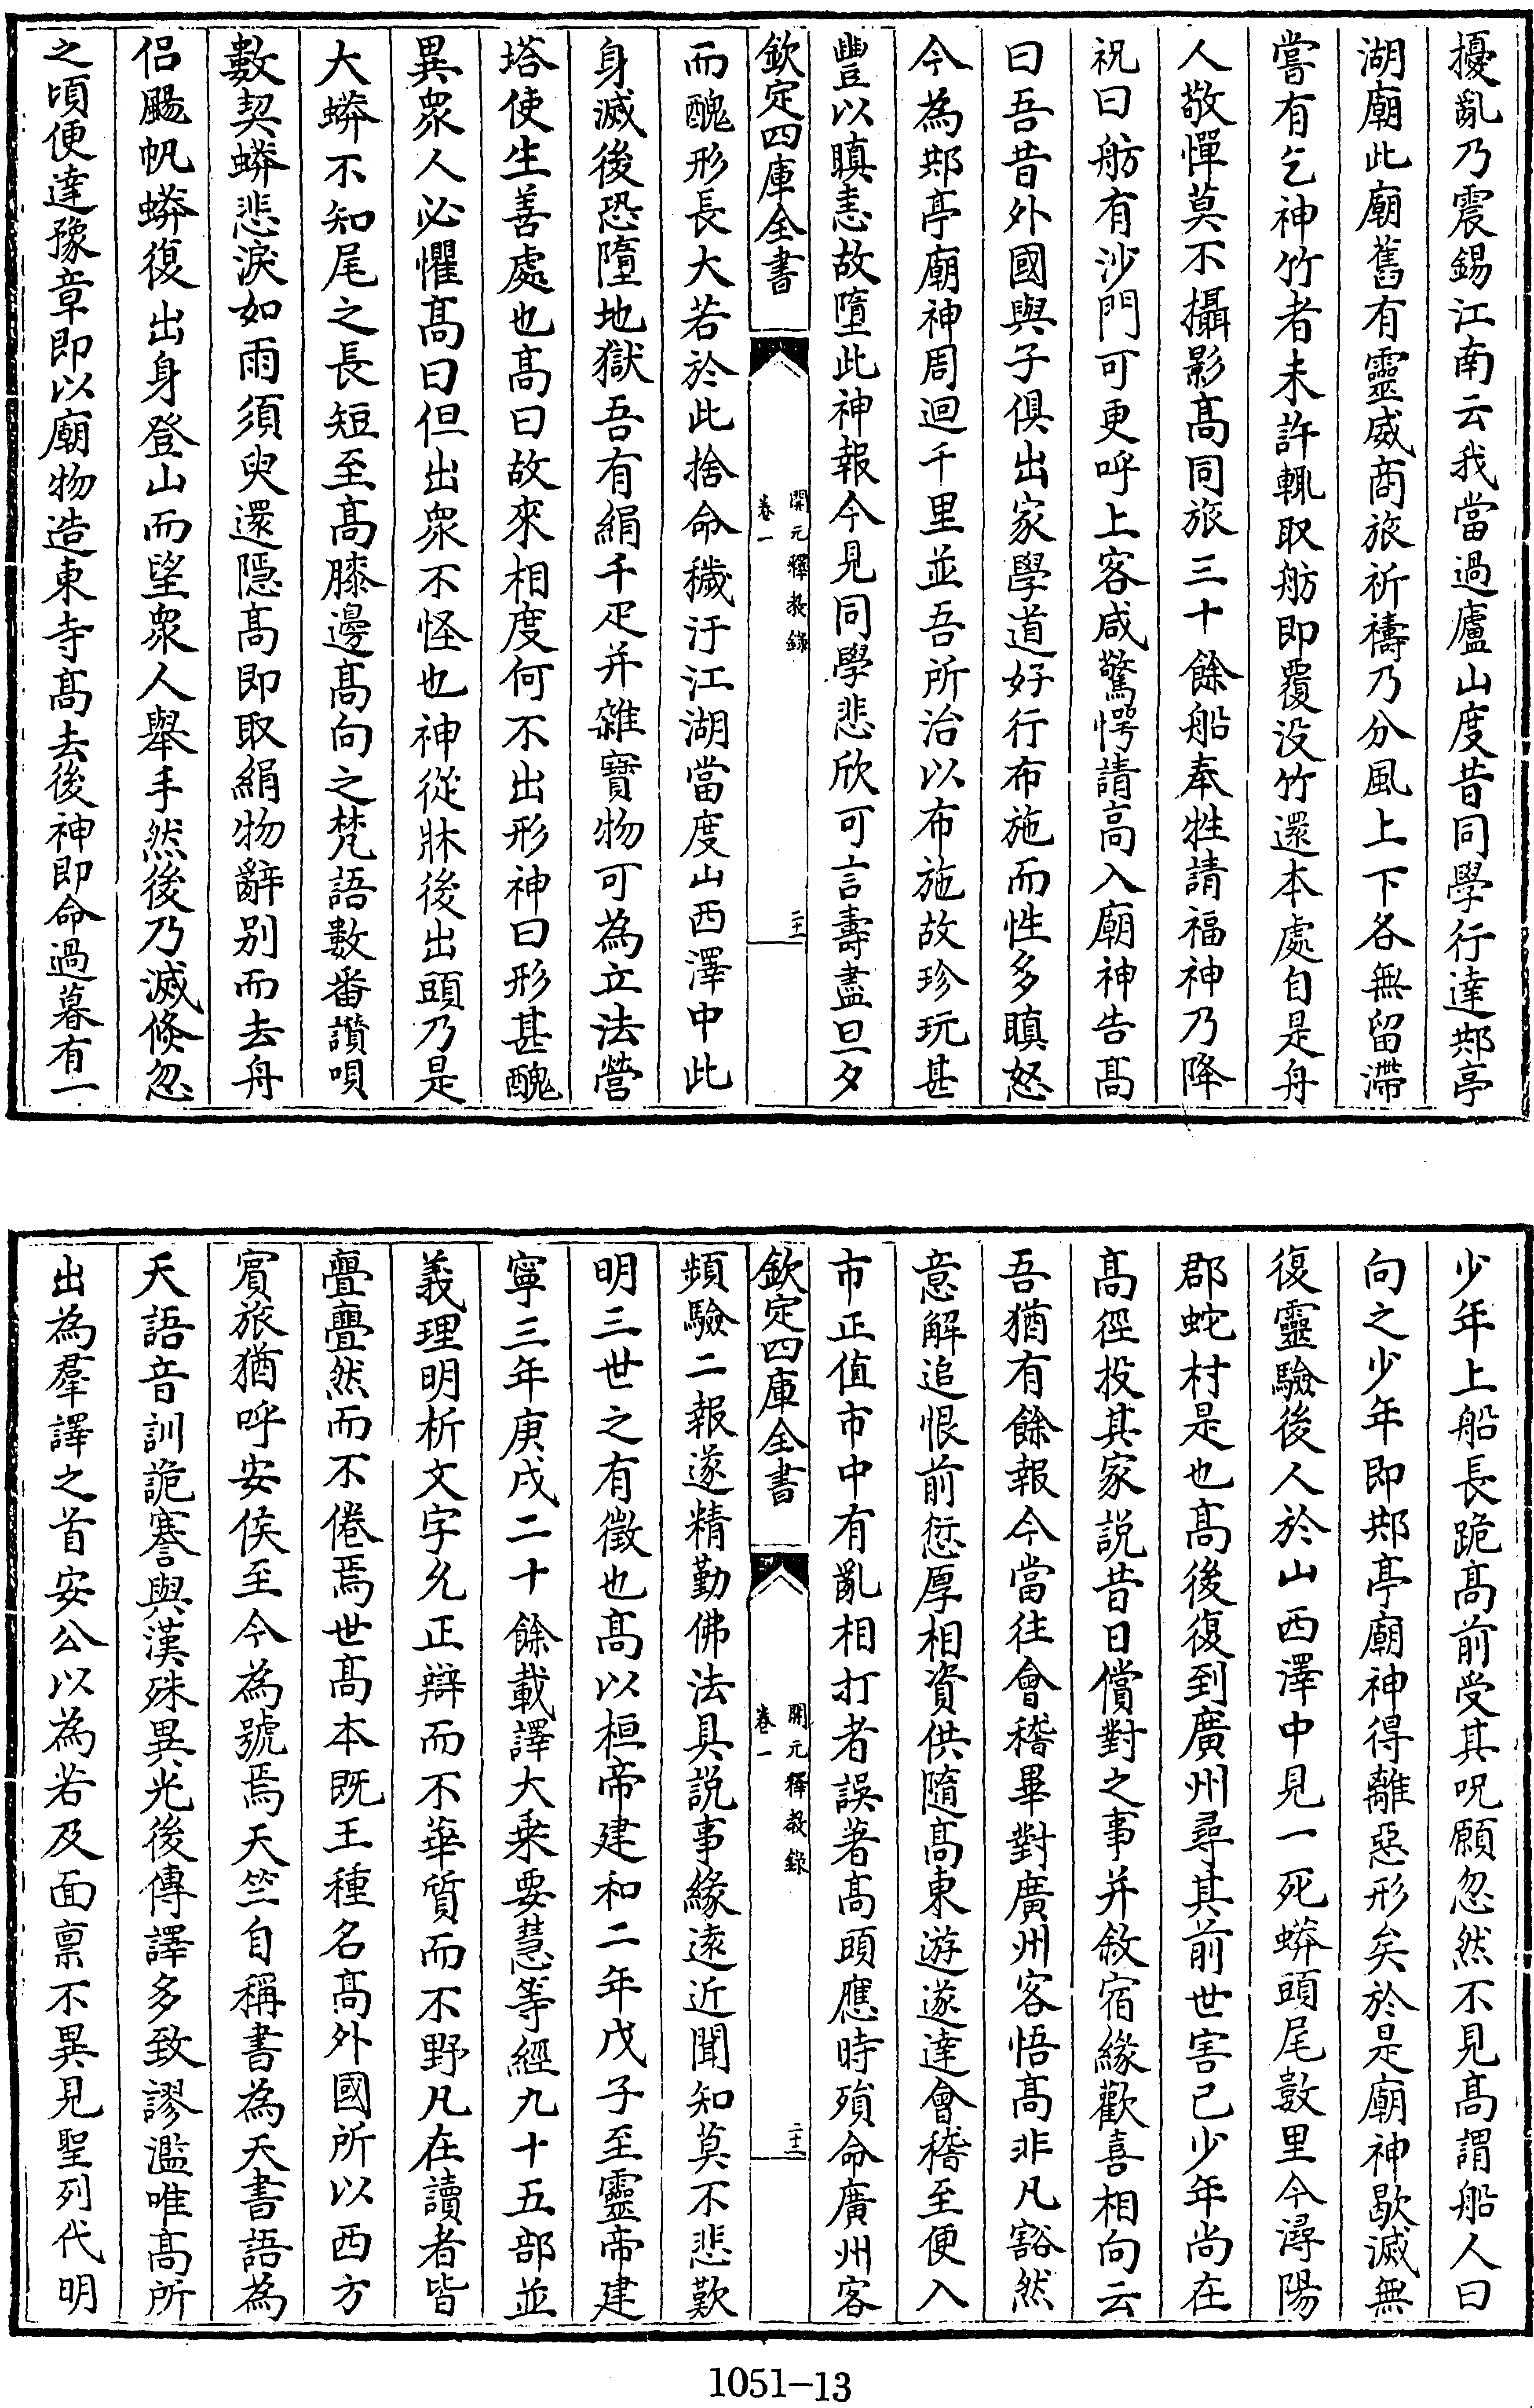 擾亂乃震錫江南云我當過廬山度昔同學行達䢼亭
湖廟此廟舊有靈威商旅祈禱乃分風上下各無留滯
嘗有乞神竹者未許輒取舫即覆没竹還本處自是舟
人敬憚莫不攝影髙同旅三十餘船奉牲請福神乃降
祝曰舫有沙門可更呼上客咸驚愕請髙入廟神告髙
曰吾昔外國與子俱出家學道好行布施而性多瞋怒
今為䢼亭廟神周迴千里並吾所治以布施故珍玩甚
豐以瞋恚故墮此神報今見同學悲欣可言壽盡旦夕
欽定四庫全書
開元釋教錄
卷一
二十
而醜形長大若於此捨命穢汙江湖當度山西澤中此
身滅後恐墮地獄吾有絹千疋并雜寶物可為立法營
塔使生善處也髙曰故來相度何不出形神曰形甚醜
異衆人必懼髙曰但出衆不怪也神從牀後出頭乃是
大蟒不知尾之長短至髙膝邊髙向之梵語數番讚唄
數契蟒悲淚如雨須臾還隱髙即取絹物辭別而去舟
侣颺帆蟒復出身登山而望衆人舉手然後乃滅倐忽
之頃便達豫章即以廟物造東寺髙去後神即命過暮有一
少年上船長跪髙前受其呪願忽然不見髙謂船人曰
向之少年即䢼亭廟神得離惡形矣於是廟神歇滅無
復靈驗後人於山西澤中見一死蟒頭尾數里今潯陽
郡蛇村是也髙後復到廣州尋其前世害己少年尚在
髙徑投其家説昔日償對之事并敘宿緣歡喜相向云
吾猶有餘報今當往會稽畢對廣州客悟髙非凡豁然
意解追恨前愆厚相資供隨髙東遊遂達會稽至便入
市正值市中有亂相打者誤著髙頭應時殞命廣州客
欽定四庫全書
開元釋教錄
卷一
二十一
頻驗二報遂精勤佛法具説事緣逺近聞知莫不悲歎
明三世之有徵也髙以桓帝建和二年戊子至靈帝建
寧三年庚戌二十餘載譯大乗要慧等經九十五部並
義理明析文字允正辯而不華質而不野凡在讀者皆
亹亹然而不倦焉世髙本既王種名髙外國所以西方
賔旅猶呼安侯至今為號焉天竺自稱書為天書語為
天語音訓詭蹇與漢殊異先後傳譯多致謬濫唯髙所
出為羣譯之首安公以為若及面稟不異見聖列代明
1051-13